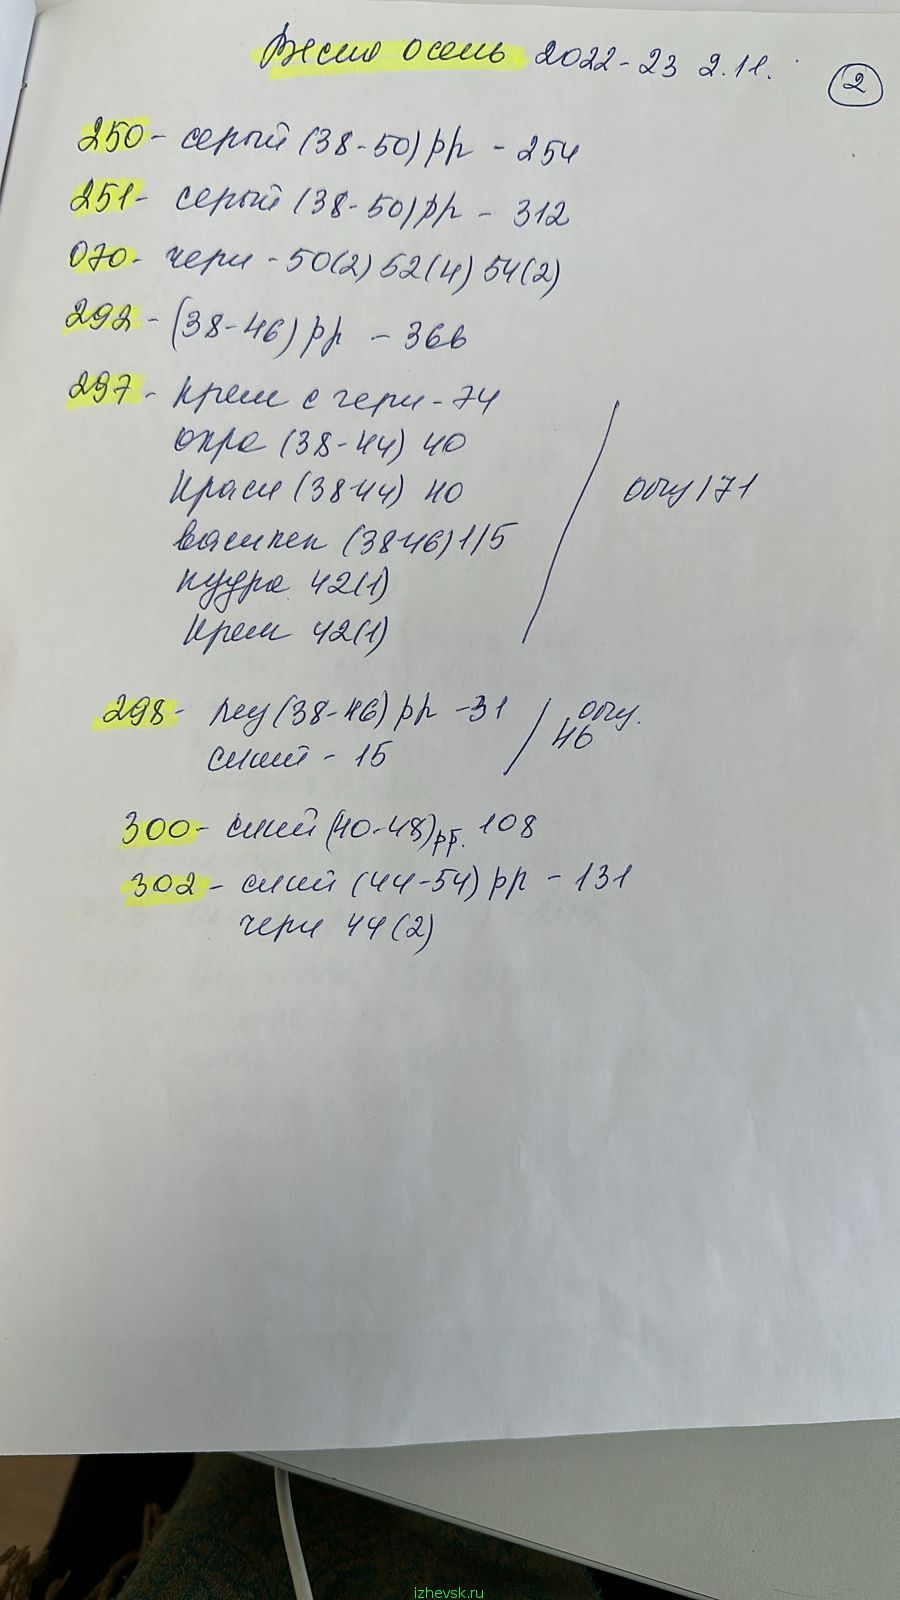 Весна осень 2022-23 2.11.
2
250 - серый (38-50) рр - 254
251 - серый (38-50) рр - 312
070 - черн - 50(2) 52(4) 54(2)
292 - (38-46) рр - 366
297 - крем с черн - 74
охра (38-44) 40
Красн (38-44) 40
василек (38-46) 115
пудра 42(1)
Крем 42(1)
171
298 - (38-46) рр - 31
синий - 15
46
300 - синий (40-48) рр. 108
302 - синий (44-54) рр - 131
черн 44(2)
izhevsk.ru